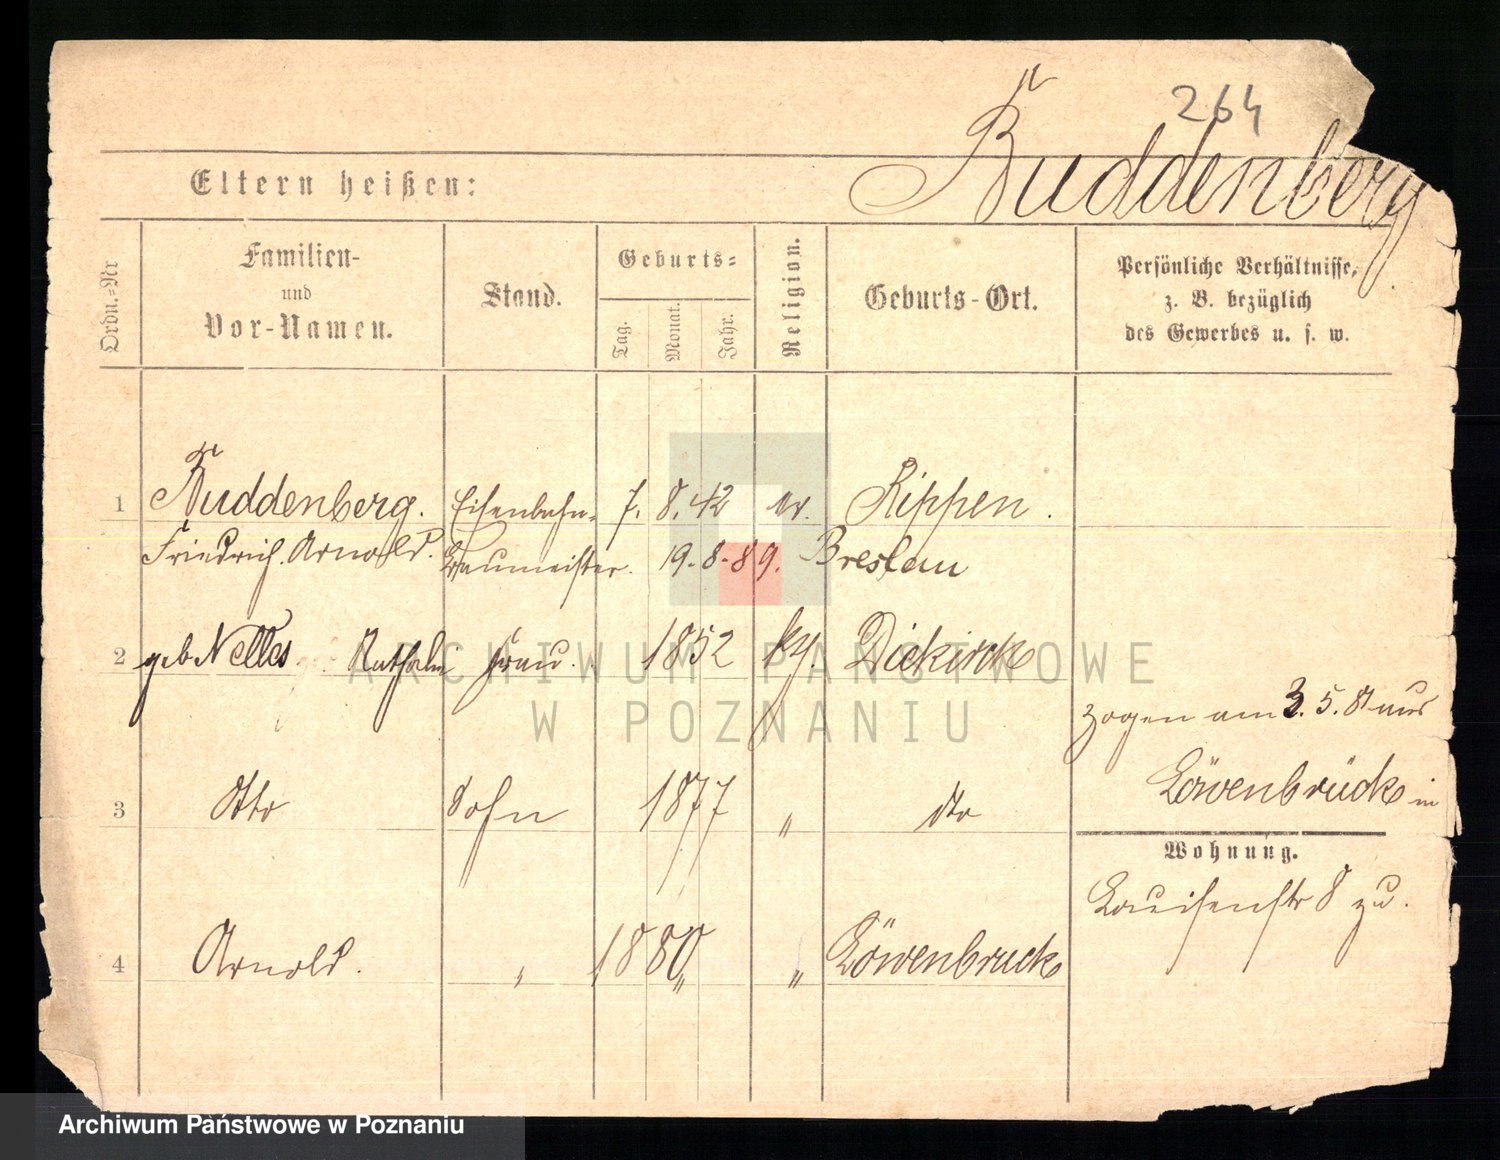 264
Buddenberg
Eltern heißen:
Ordn.=Nr
Familien-
und
Vor-Namen.
Stand.
Geburts=
Tag.
Monat.
Jahr.
Religion.
Geburts-Ort.
Persönliche Verhältnisse,
z. B. bezüglich
des Gewerbes u. s. w.
1 Buddenberg. Eisenbahn- 7. 8. 42 ev. Rippen.
Friedrich Arnold. Baumeister. 19.8.89. Breslau
2 geb Nelles Frau. 1852 Diekirck
zogen am 3. 5. aus
Löwenbrück in
3 Otto Sohn 1877 " dto
Wohnung.
Louisenstr 8 zu.
4 Arnold. " 1880 " Löwenbruck
ARCHIWUM PAŃSTWOWE
W POZNANIU
Archiwum Państwowe w Poznaniu